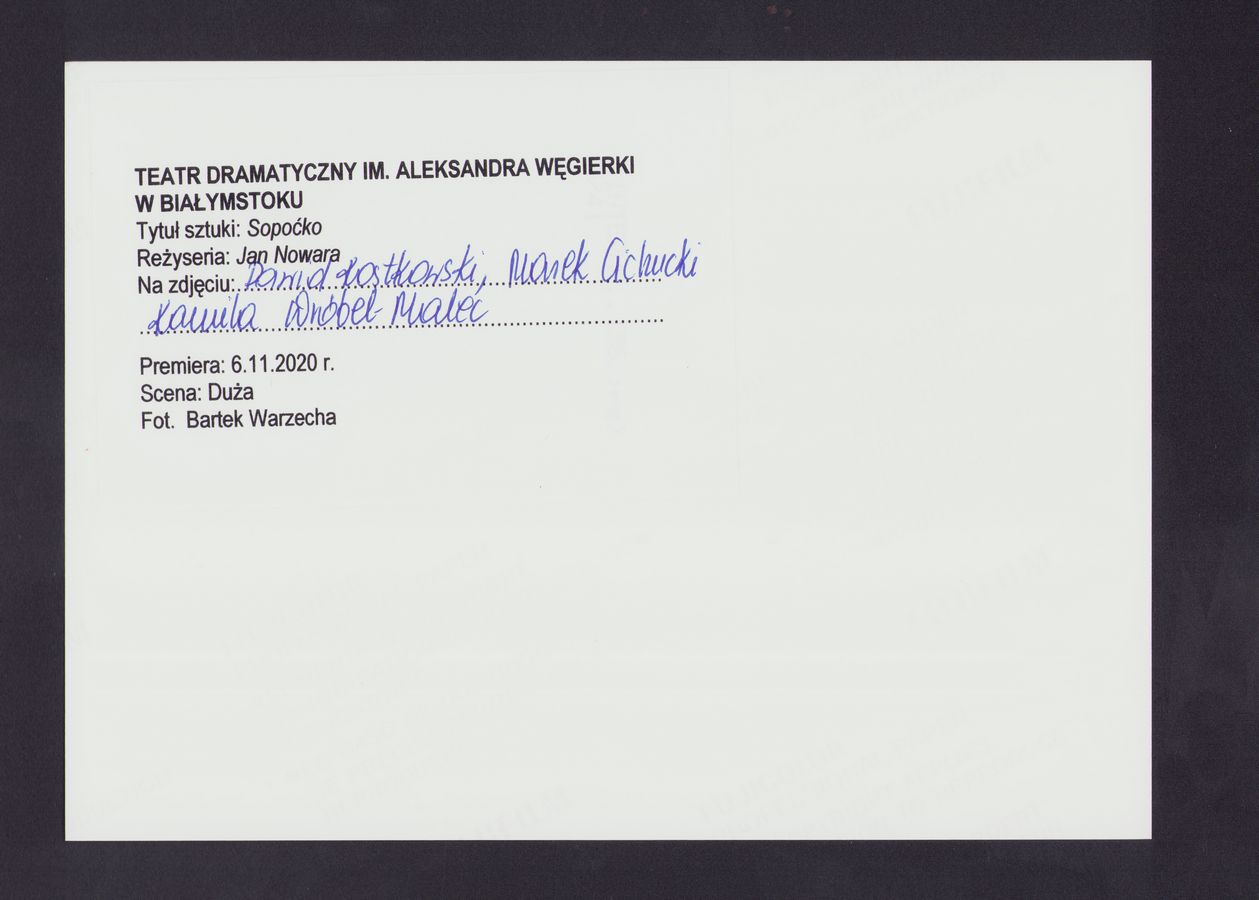 TEATR DRAMATYCZNY IM. ALEKSANDRA WĘGIERKI
W BIAŁYMSTOKU
Tytuł sztuki: Sopoćko
Reżyseria: Jan Nowara
Na zdjęciu: Dawid Kostkowski, Marek Cichucki
Kamila Wróbel-Malec
Premiera: 6.11.2020 r.
Scena: Duża
Fot. Bartek Warzecha